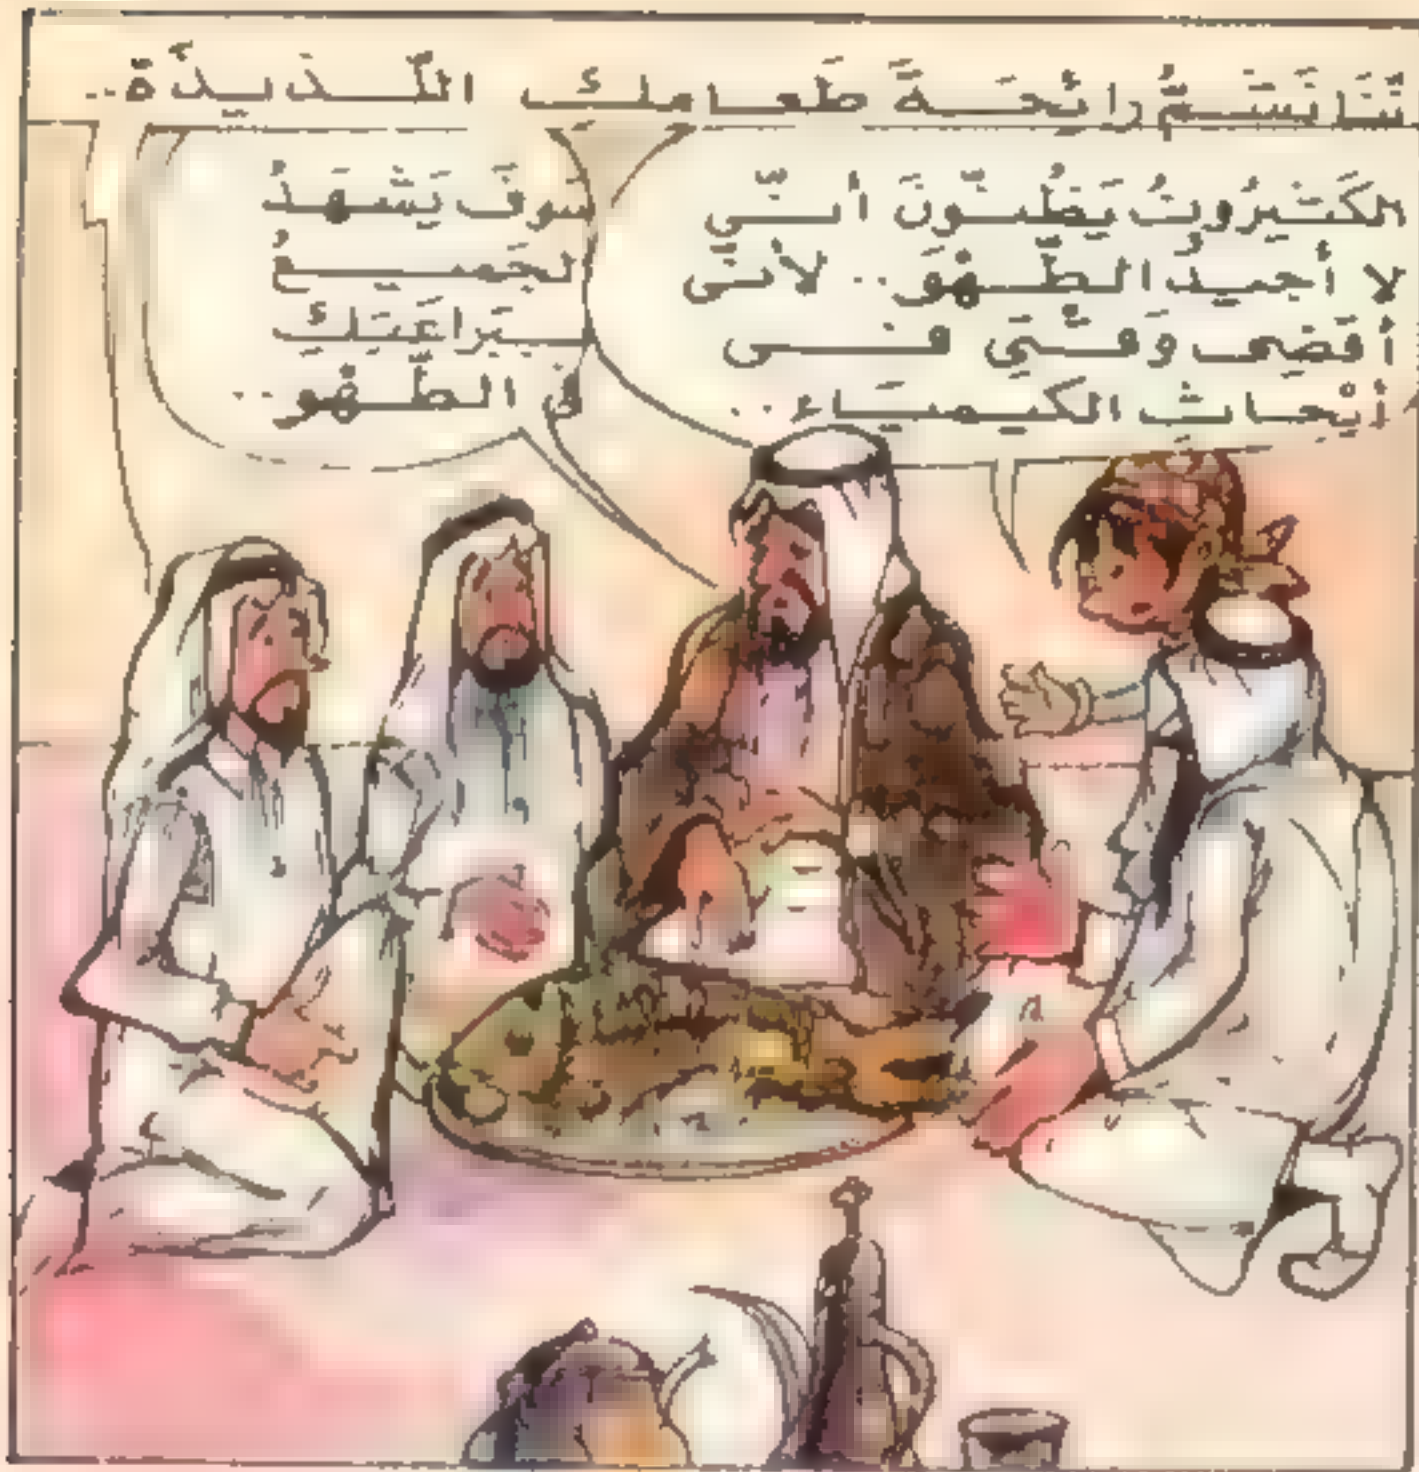 نَشْتَمُّ رائِحَةَ طَعامِكِ اللَّذيذَةَ..
الكَثيرُونَ يَظُنُّونَ أنّي
لا أُجيدُ الطَّهْوَ.. لأنّي
أقضي وَقْتي في
أبْحاثِ الكيمياءِ..
سَوفَ يَشْهَدُ
الجَميعُ
بِبَراعَتِكِ
في الطَّهْوِ..